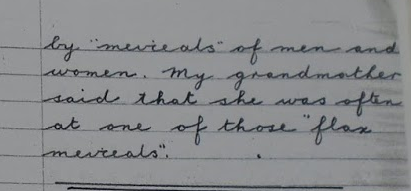 by "mevicals" of men and
women. My grandmother
said that she was often
at one of those "flax
mevicals".